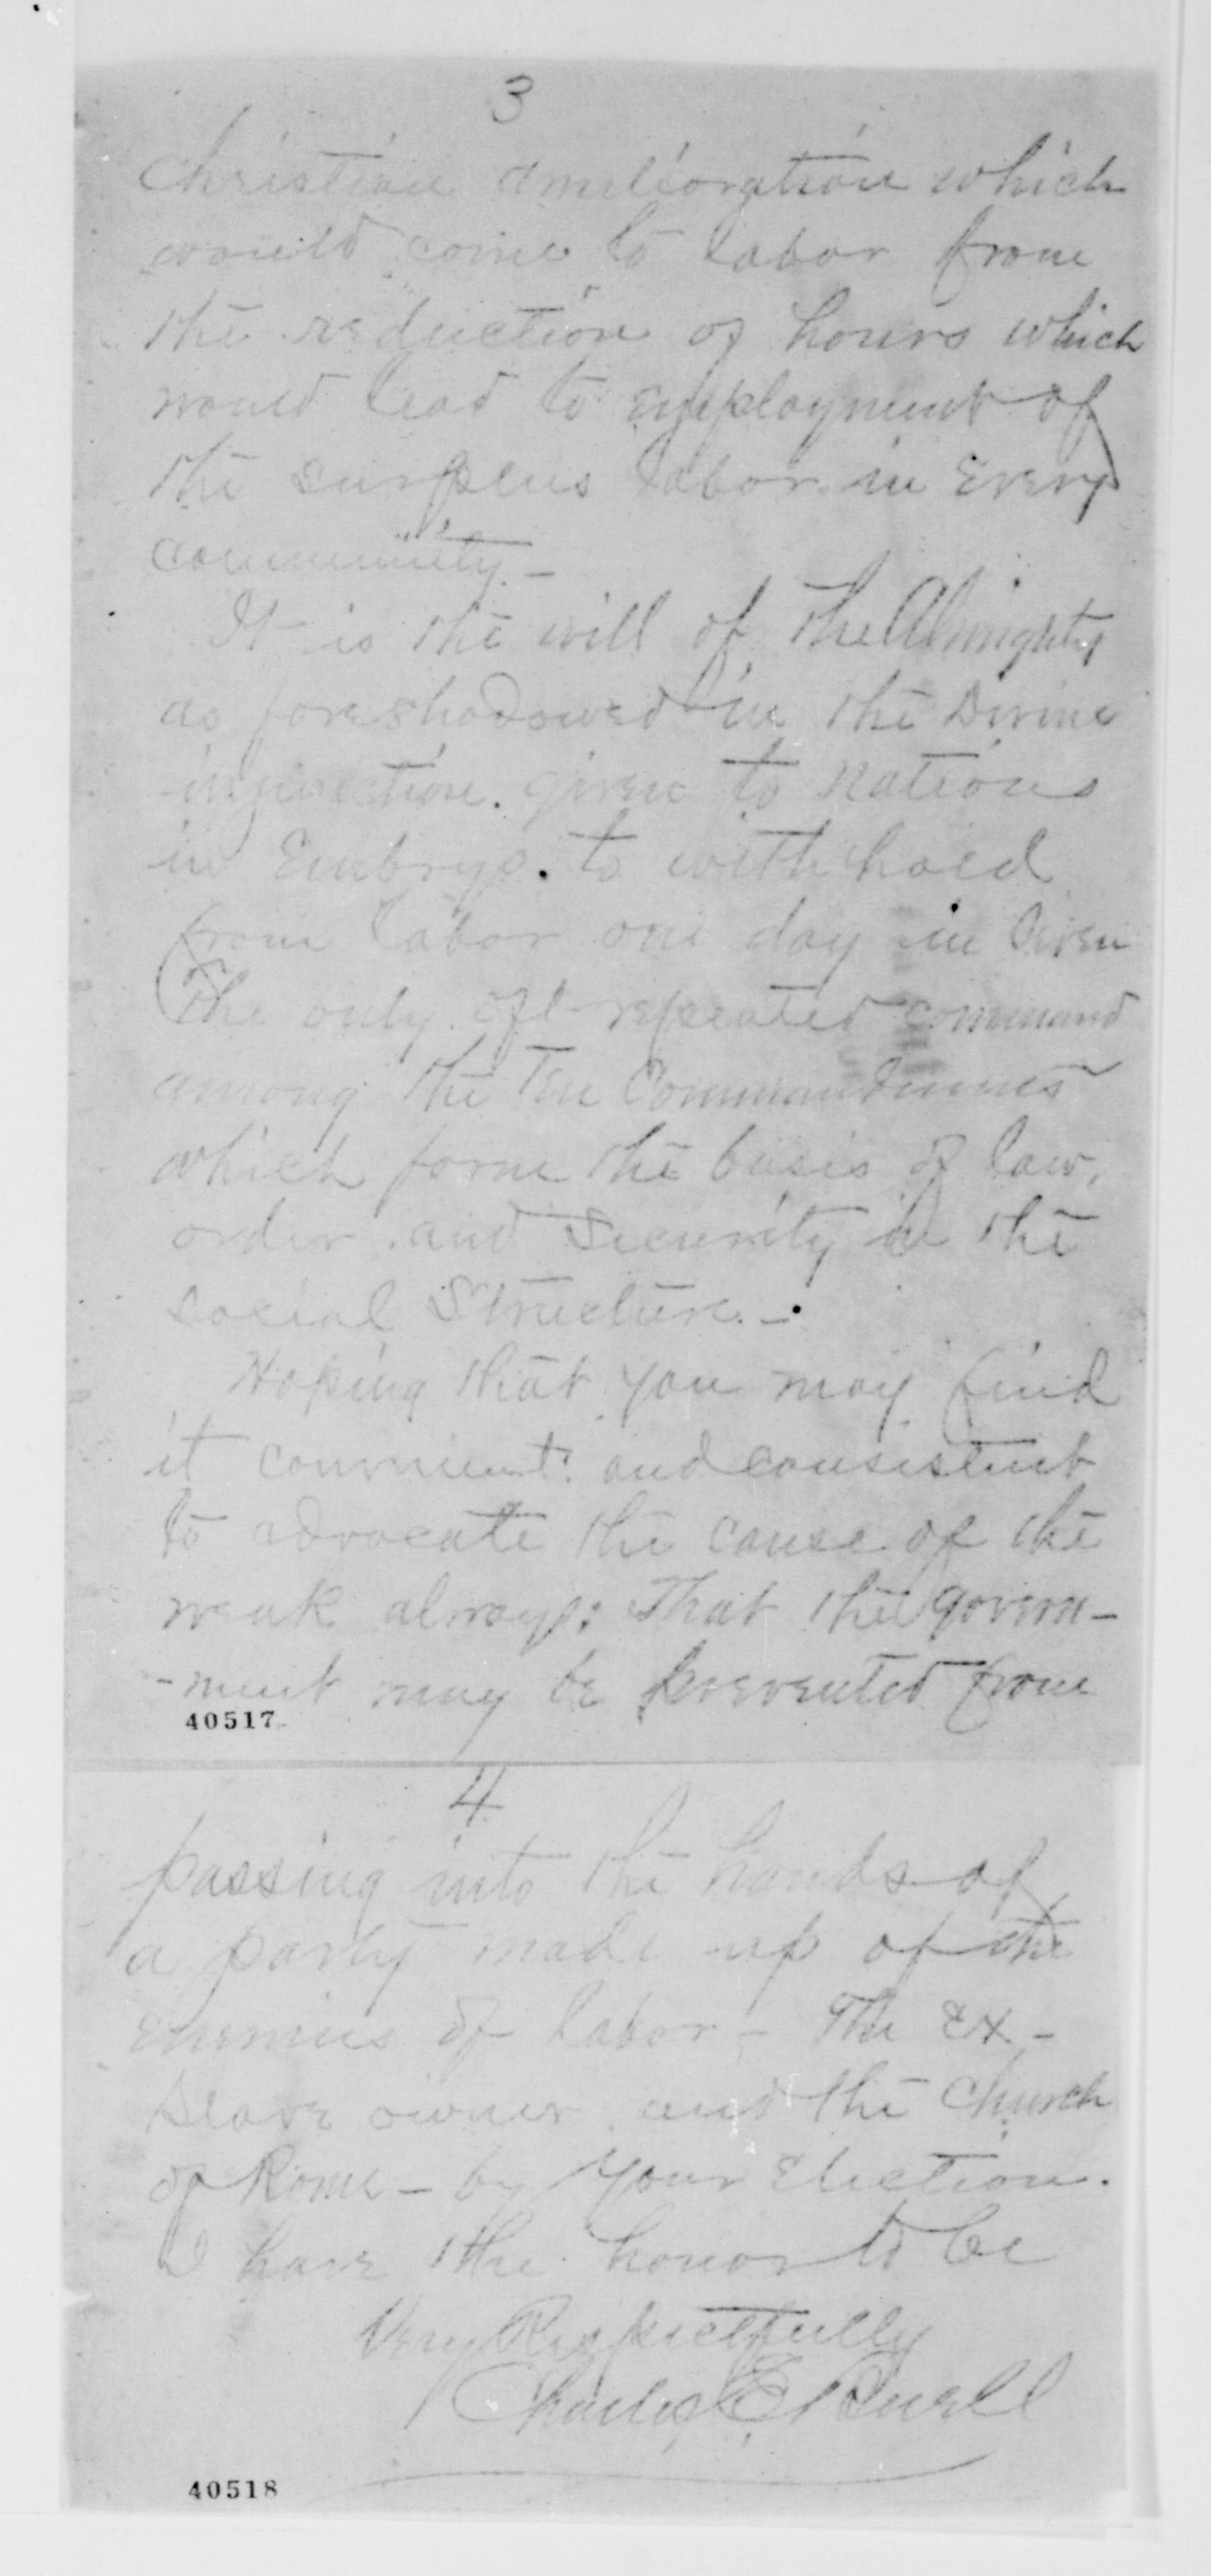 3
Christian amelioration which
would come to labor from
the reduction of hours which
would lead to employment of
the surplus labor in every
community. -
It is the will of the Almighty
as foreshadowed in the Divine
injunction. given to Nations
in Embryo. to withhold
from labor one day in seven
The only oft-repeated command
among the Ten Commandments
which form the basis of law,
order. and Security in the
social Structure. -
Hoping that you may find
it convenient and consistent
to advocate the cause of the
weak always: That the govern-
-ment may be prevented from
40517
4
passing into the hands of
a party made up of the
enemies of labor - The Ex-
Slave owner and the Church
of Rome - by Your Election.
I have the honor to be
Very Respectfully
Charles E
40518